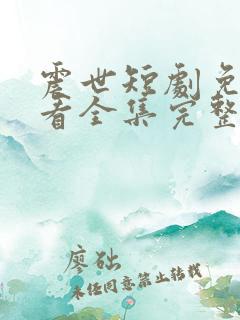 震世短劇免
看全集完整
廖础
未经同意禁止转载